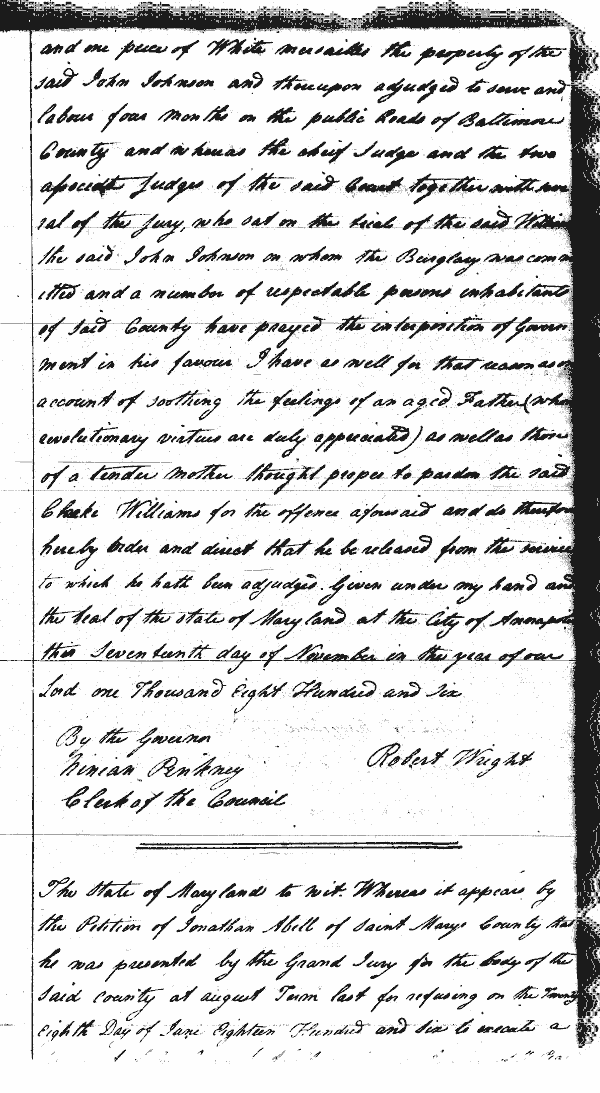 and one piece of White mersailles the property of the
said John Johnson and thereupon adjudged to serve and
labour four months on the public Roads of Baltimore
County and whereas the chief Judge and the two
associate Judges of the said Court together with seve
ral of the Jury, who sat on the trial of the said William
the said John Johnson on whom the Burglary was comm
itted and a number of respectable persons inhabitants
of said County have prayed the interposition of Govern
ment in his favour I have as well for that reason as on
account of soothing the feelings of an aged Father (whose
revolutionary virtues are duly appreciated) as well as those
of a tender mother thought proper to pardon the said
Williams for the offence aforesaid and do therefore
hereby order and direct that he be released from the service
to which he hath been adjudged. Given under my hand and
the Seal of the state of Maryland at the City of Annapolis
this Seventeenth day of November in the year of our
Lord one Thousand Eight Hundred and Six
By the Governor
Ninian Pinkney
Robert Wright
Clerk of the Council
The State of Maryland to wit. Whereas it appears by
the Petition of Jonathan Abell of Saint Marys County that
he was presented by the Grand Jury for the body of the
said county at august Term last for refusing on the Twenty
Eighth Day of June Eighteen Hundred and Six to execute a